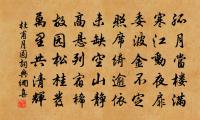 孤月當樓滿
寒江動夜扉
委波金不定
照席綺逾依
未缺空山靜
高懸列宿稀
故園松桂發
萬里共清輝
杜甫月圓詞典網集